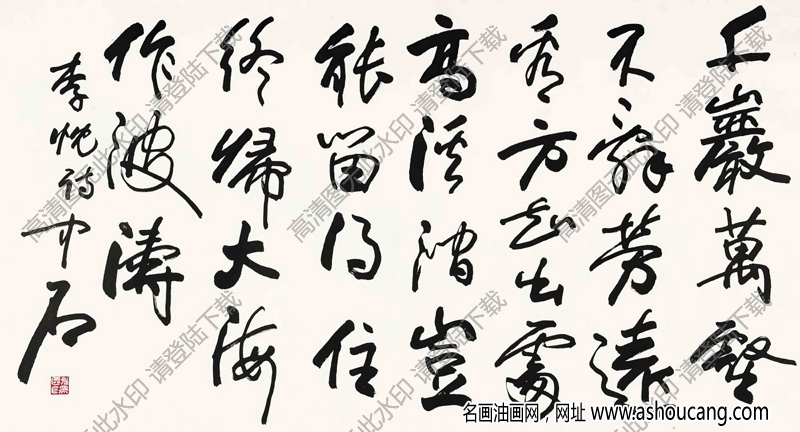 千巖萬壑
不辭勞遠
看方知出處
高溪澗豈
能留得住
終歸大海
作波濤
李忱詩中石
高清图无此水印 请登陆下载
高清图无此水印 请登陆下载
名画油画网，网址 www.ashoucang.com